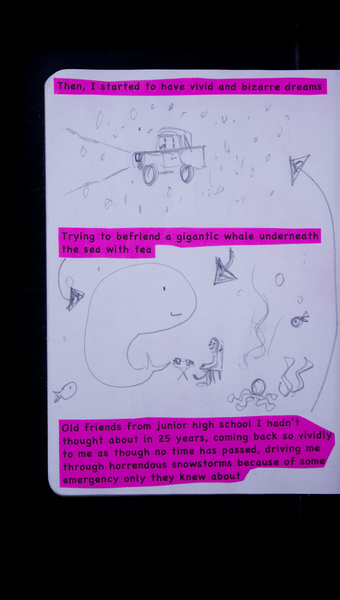 Then, I started to have vivid and bizarre dreams
Trying to befriend a gigantic whale underneath
the sea with tea
Old friends from junior high school I hadn't
thought about in 25 years, coming back so vividly
to me as though no time has passed, driving me
through horrendous snowstorms because of some
emergency only they knew about